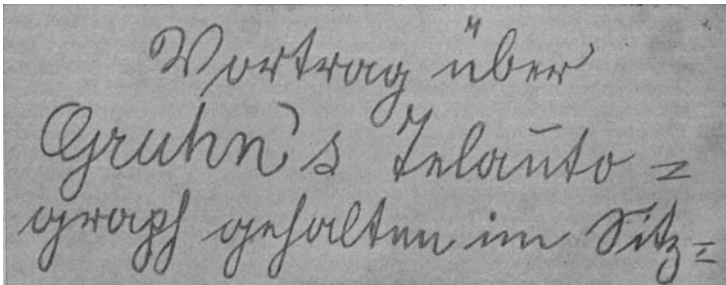 Vortrag über
Gruhn's Telauto=
graph gehalten im Sitz=